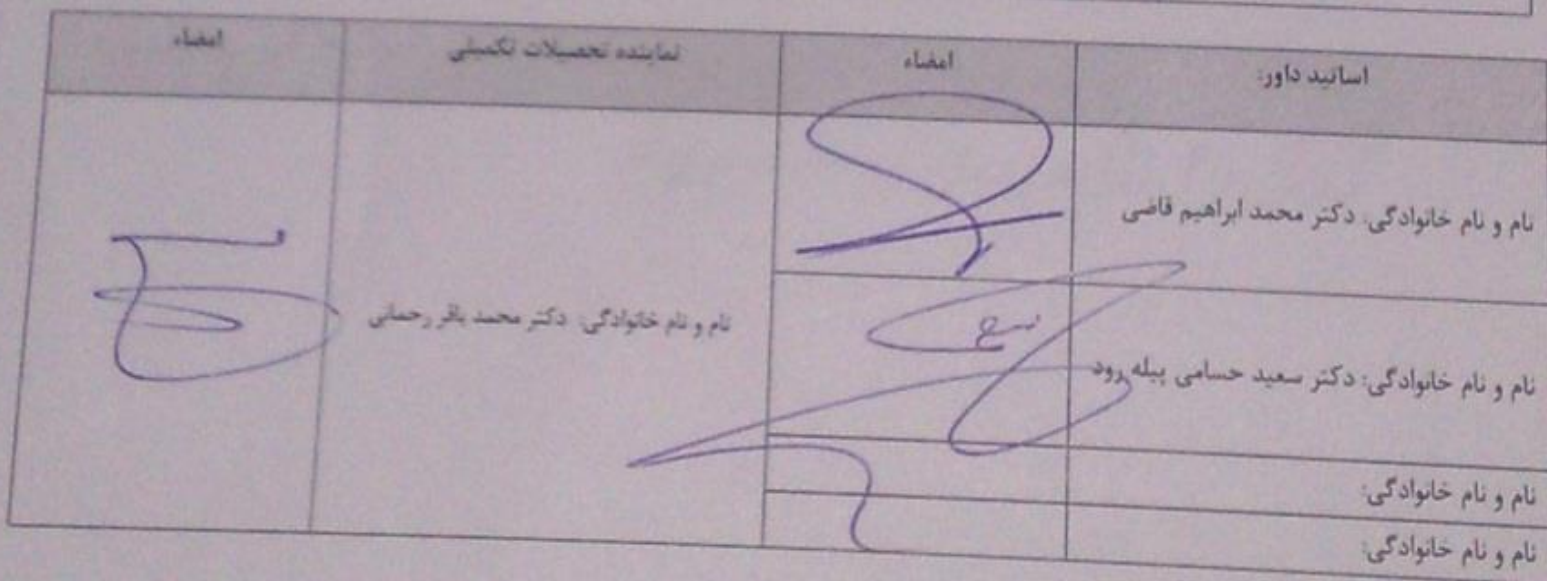 اساتید داور:
امضاء
نماینده تحصیلات تکمیلی
امضاء
نام و نام خانوادگی: دکتر محمد ابراهیم قاضی
نام و نام خانوادگی: دکتر محمد باقر رحمانی
نام و نام خانوادگی: دکتر سعید حسامی پیله رود
نام و نام خانوادگی:
نام و نام خانوادگی: